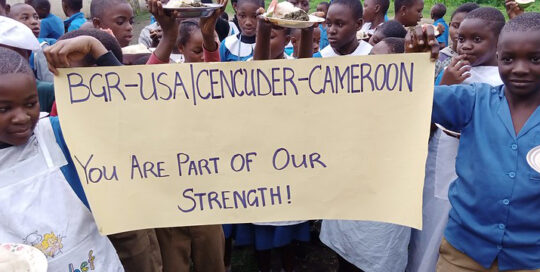 BGR-USA/CENCUDER-CAMEROON
YOU ARE PART OF OUR
STRENGTH!